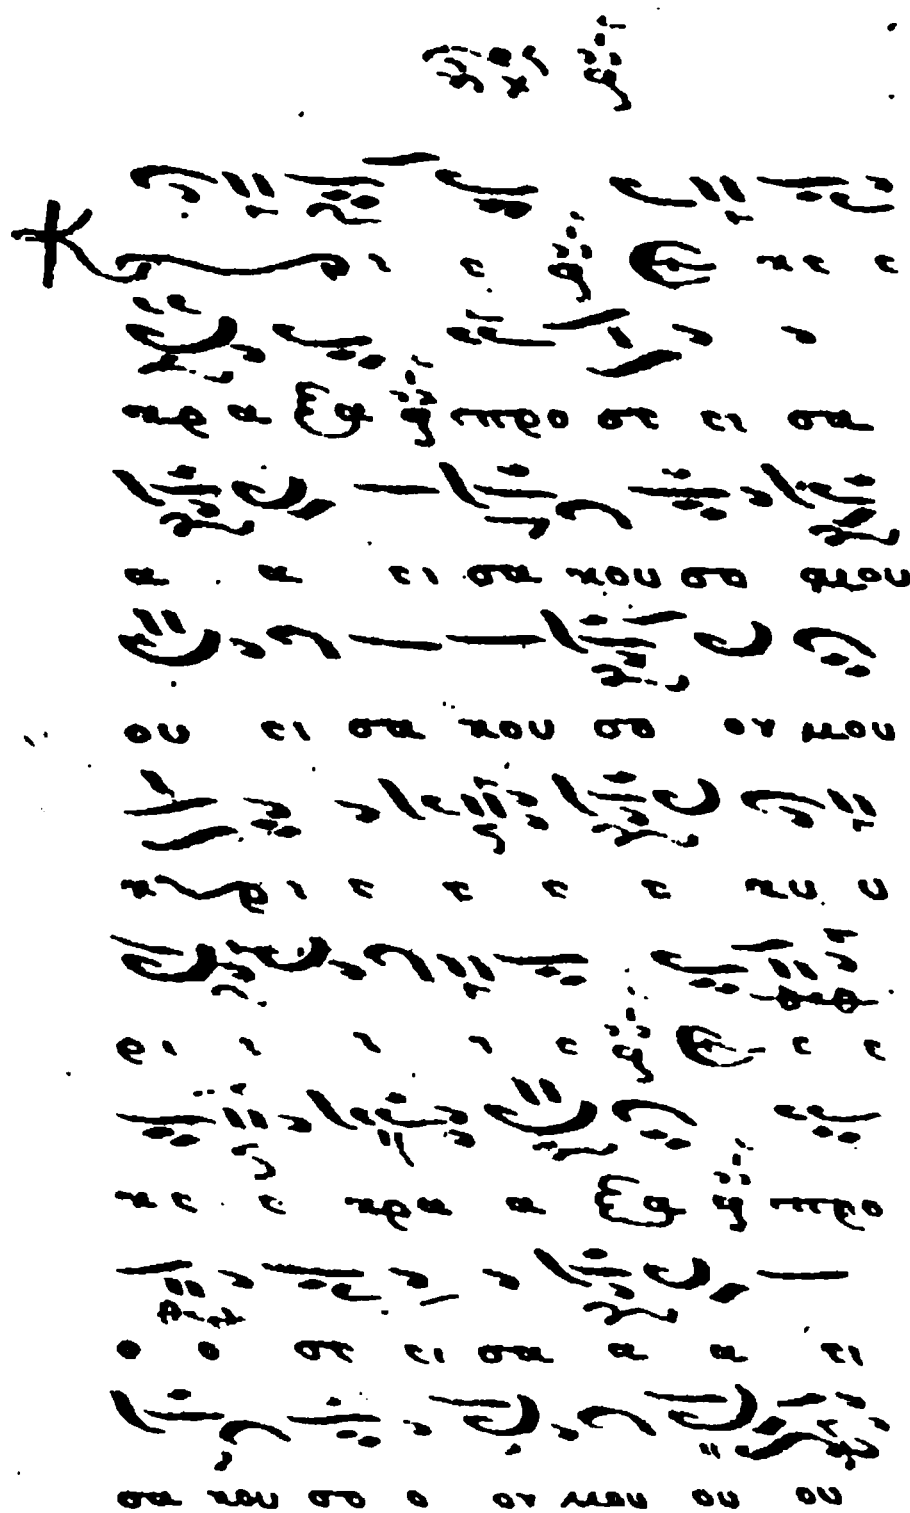 Κ ι ε Ε κε ε
κρα α ξα προ σε ει σα
α α ει σα κου σο μου
ου ει σα κου σο ον μου
κ ρι ε ε ε ε κυ υ
ρι ι ι ι ε Ε ε ε
κε ε κρα α ξα προ
ο ο σε ει σα α α ει
σα κου σο ο ον μου ου ου